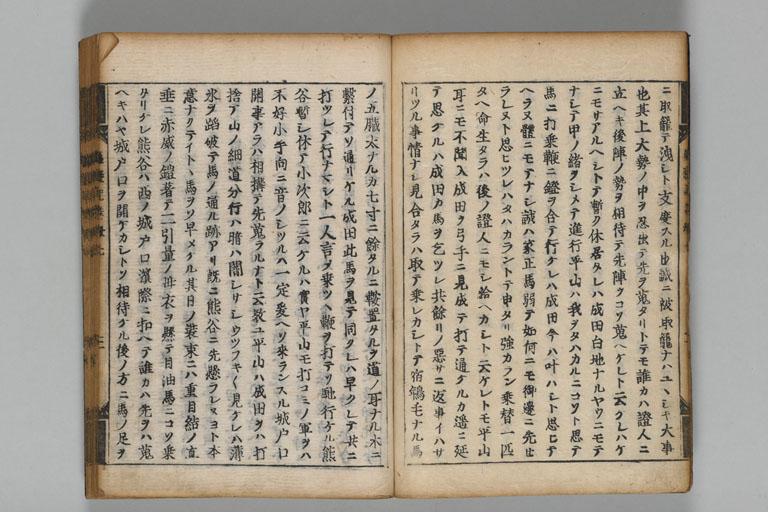 ニ取籠テ洩シト支度スル由誠ニ被取籠ナハユヽシキ大事
也其上大勢ノ中ヲ忍出テ先ヲ蒐タリトテモ誰カハ證人ニ
立ヘキ後陣ノ勢ヲ相待テ先陣ヲコソ蒐ヘケレト云クレハケ
ニモサアルヘシトテ暫ク休居タレハ成田白地ナルヤウニモテ
ナシテ甲ノ緒ヲシメテ進行平山ハ我ヲタハカルニコソト思テ
馬ニ打乗鞭ニ鐙ヲ合テ行ケレハ成田今ハ叶ハシト思ヒテ
ヘラヌ體ニモテナシ誠ハ家正馬弱テ如何ニモ御邊ニ先せ
ラレヌト思ヒツレハタハカラントテ申タリ強カラン乗替一匹
タヘ命生タラハ後ノ證人ニモシ給ヘカシト云ケレトモ平山
耳ニモ不聞入成田ヲ弓手ニ見成テ打テ通ケルカ遙ニ延
テ思ケルハ成田カ馬ヲ乞ツレ共餘リノ惡サニ返事イハサ
リツル事情ナシ見合タラハ取テ乗レカシトテ宿鴾毛ナル馬
ノ五臓太ナルカ七寸ニ餘タルニ鞍置タルヲ道ノ耳ナル木ニ
繋付テソ通リケル成田此馬ヲ見テ同クレハ早クレテ共ニ
打ツレテ行ナマシト一人言ヲ乗ツヽ鞭ヲ打テソ馳行ケル熊
谷暫シ休テ小次郎ニ云ケルハ實ヤ平山モ打コミノ軍ヲハ
不好小手向ニ音ノシツルハ一定爰ヘソ来ランスル城戸口
開事アラハ相構テ先蒐ラルナト云教ユ平山ハ成田ヲハ打
捨テ山ノ細道分行ハ暗ハ闇シサシウツフキ〱見ケレハ薄
氷ヲ蹈破テ馬ノ通ル跡アリ既ニ熊谷ニ先懸ラレヌヨト本
意ナクテイトヽ馬ヲソ早メケル其日ノ装束ニハ重目結ノ直
垂ニ赤威ノ鎧著テ二引量ノ母衣ヲ懸テ目油馬ニコソ乗
タリケレ熊谷ハ西ノ城戸口濱際ニ扣ヘテ誰カハ先ヲハ蒐
ヘキハヤ城戸口ヲ開ケカシトソ相待ケル後ノ方ニ馬ノ足ヲ